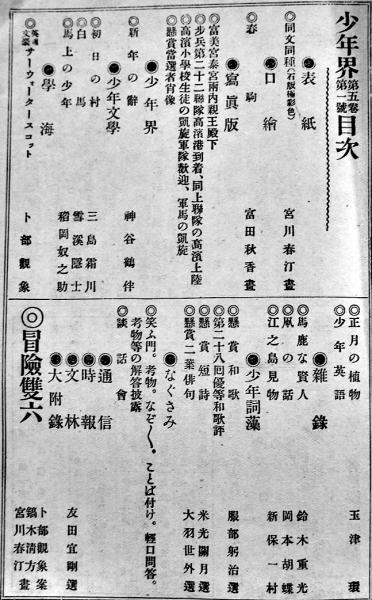 少年界 第五卷 第一號 目次
●表紙
◎同文同種(石版極彩色) 宮川春汀畫
●口繪
◎春駒 富田秋香畫
●寫眞版
◎富美宮泰宮兩內親王殿下
◎步兵第二十二聯隊高濱港到着、同上聯隊の高濱上陸
◎高濱小學校生徒の凱旋軍隊歡迎、軍馬の凱旋
◎懸賞當選者肖像
●少年界
◎新年の辭 神谷鶴伴
●少年文學
◎初日の村 三島霜川
◎白馬 雪溪隱士
◎馬上の少年 稻岡奴之助
●學海
◎英國文豪 サーウォータースコット 卜部觀象
◎正月の植物 玉津環
◎少年英語
●雜錄
◎馬鹿な賢人 鈴木重光
◎凧の話 岡本胡蝶
◎江之島見物 新保一村
●少年詞藻
◎懸賞和歌 服部躬治選
◎第二十八囘優等和歌評
◎懸賞短詩 米光關月選
◎懸賞二葉俳句 大羽世外選
●なぐさみ
◎笑ふ門。考物。なぞ〱。ことば付け。輕口問答。
考物等の解答披露
◎談話會
●通信
●時報
●文林 友田宜剛選
●大附錄
◎冒險雙六 卜部觀象案
鏑木淸方畫
宮川春汀畫